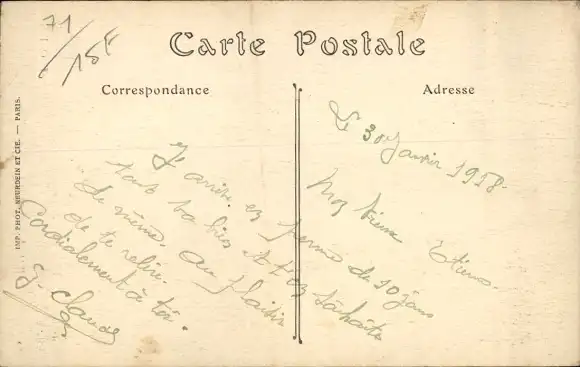 71/15f
Carte Postale
Correspondance
Adresse
IMP. PHOT. NEURDEIN ET CIE. — PARIS.
Le 30 Janvier 1918.
Mon vieux
J' en perme de 10 jours
tout va bien et t'en souhaite
de même. Au plaisir
de te relire.
Cordialement à toi.
G. Claude